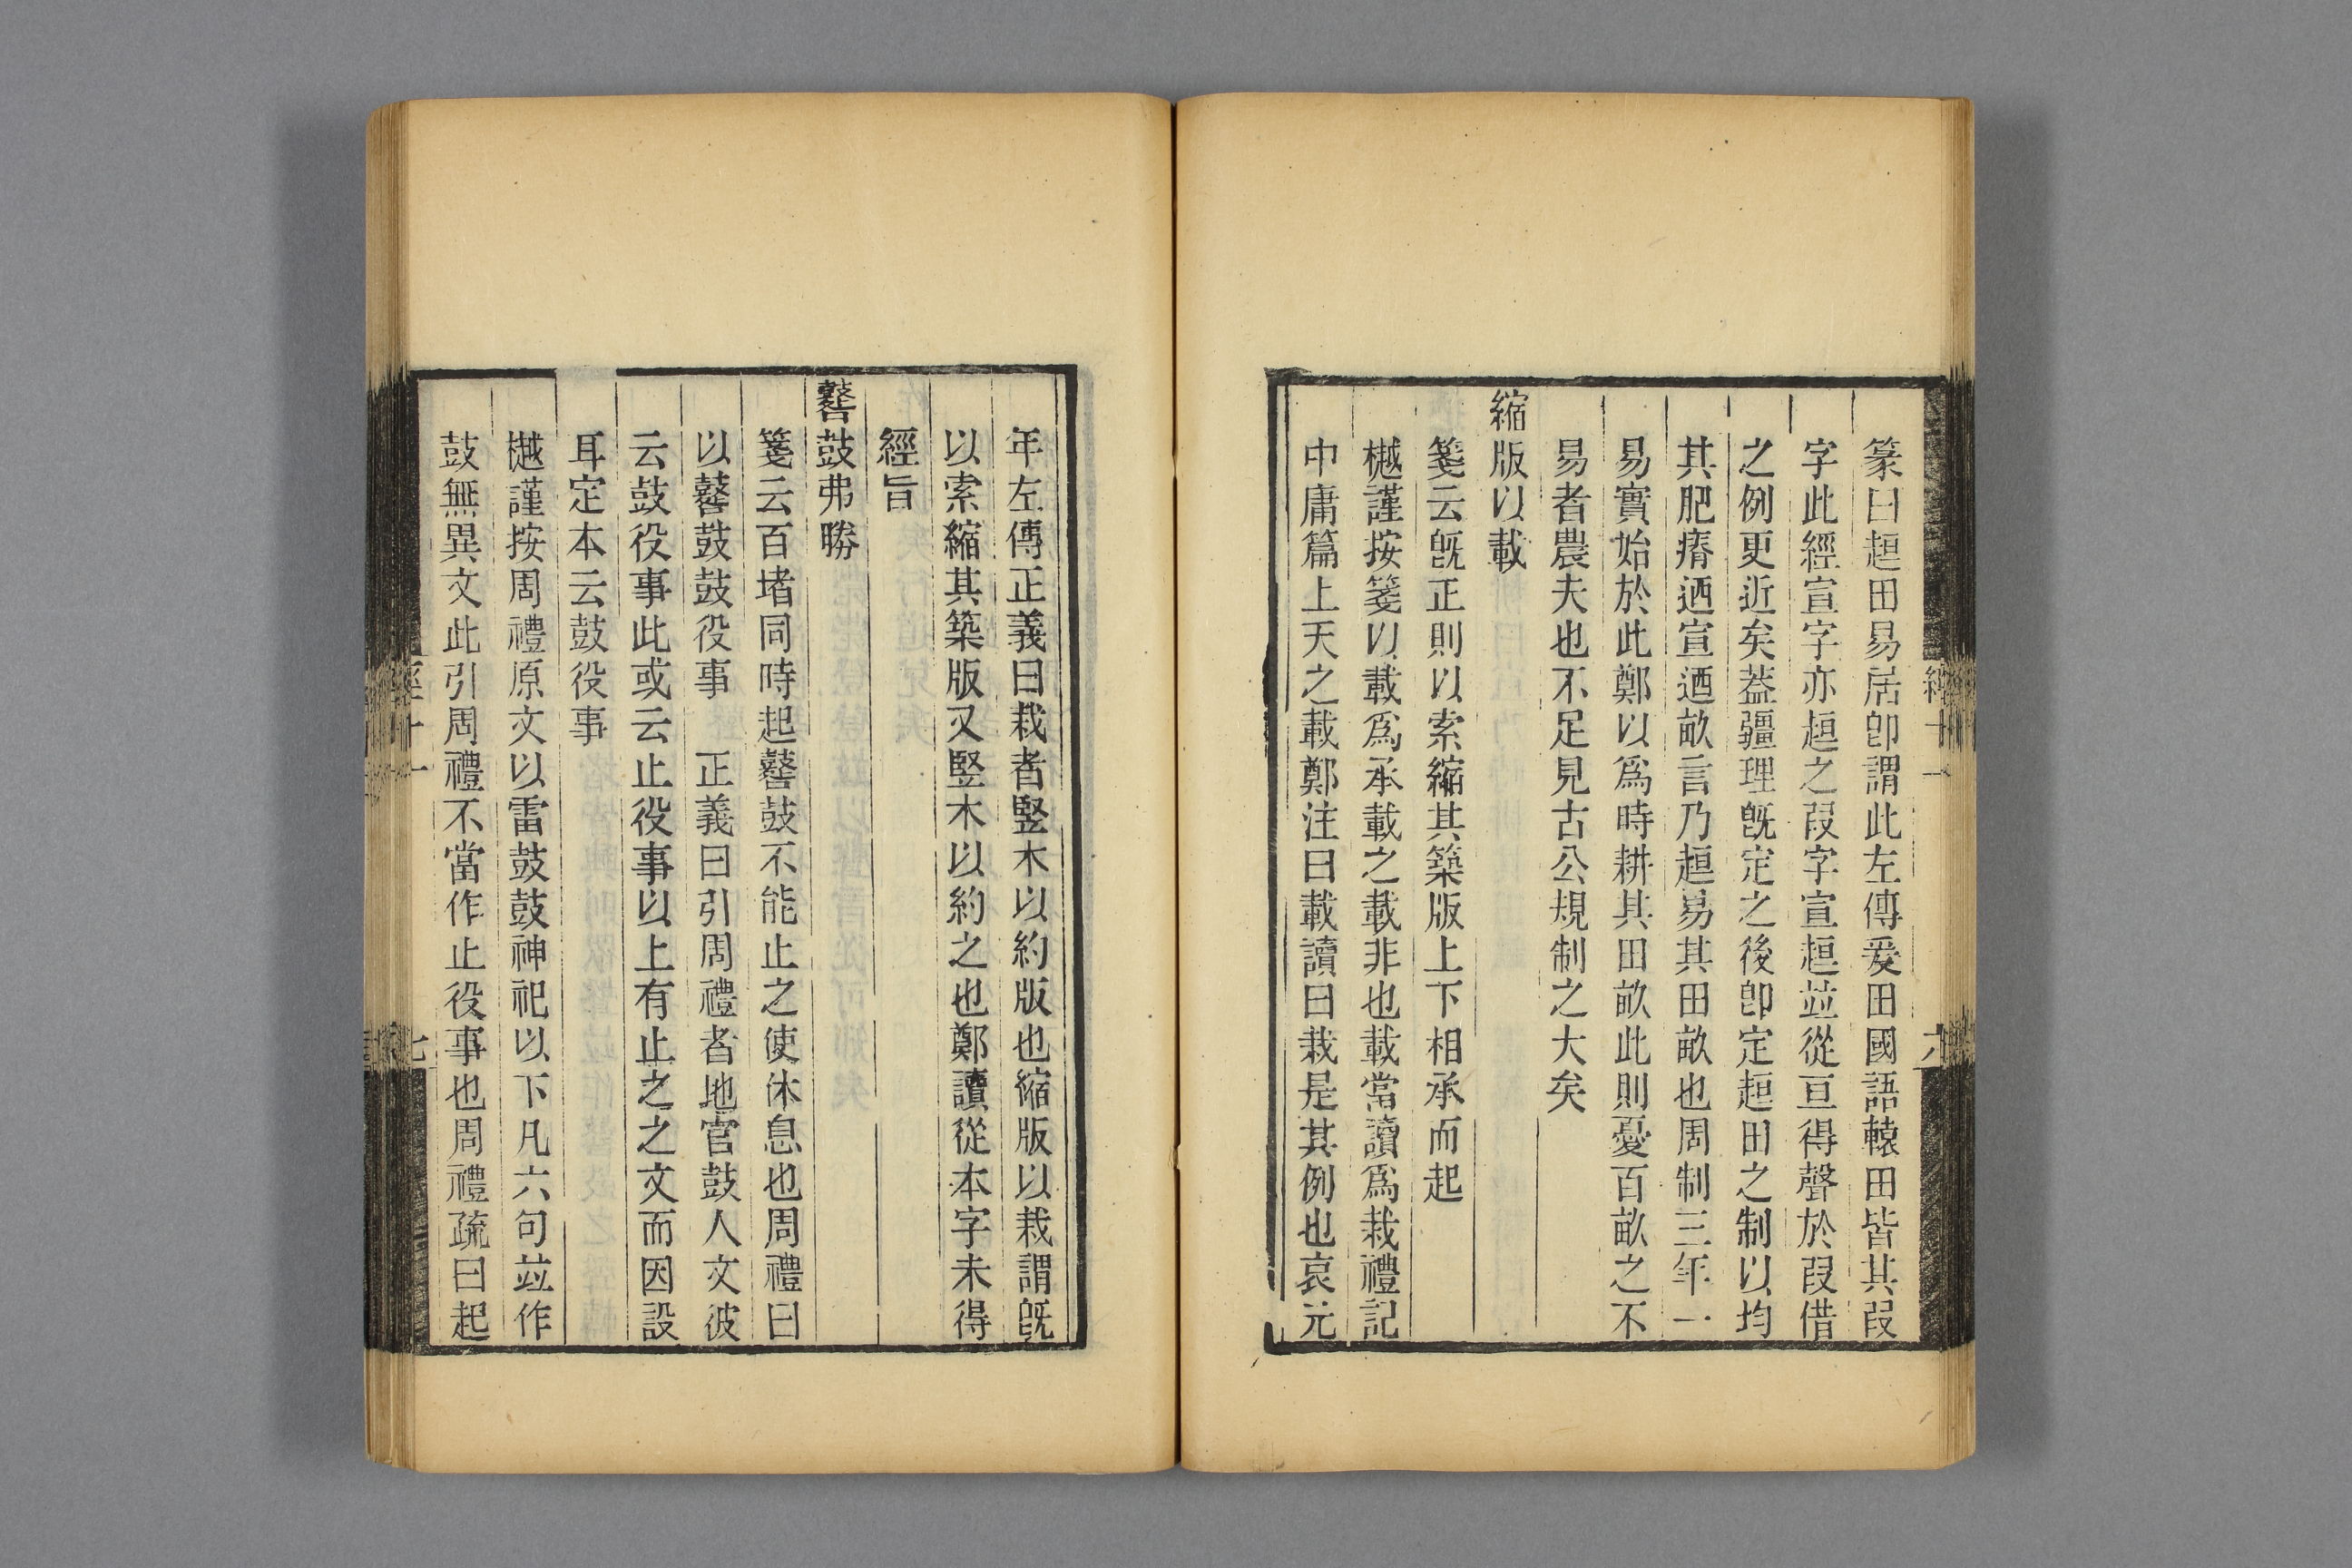 篆曰趄田易居卽謂此左傳爰田國語轅田皆其叚
字此經宣字亦趄之叚字宣趄竝從亘得聲於叚借
之例更近矣葢疆理旣定之後卽定趄田之制以均
其肥瘠迺宣迺畝言乃趄易其田畝也周制三年一
易實始於此鄭以爲時耕其田畝此則憂百畝之不
易者農夫也不足見古公規制之大矣
縮版以載
箋云旣正則以索縮其築版上下相承而起
樾謹按箋以載爲承載之載非也載當讀爲栽禮記
中庸篇上天之載鄭注曰載讀曰栽是其例也哀元
年左傳正義曰栽者豎木以約版也縮版以栽謂旣
以索縮其築版又豎木以約之也鄭讀從本字未得
經旨
鼛鼓弗勝
箋云百堵同時起鼛鼓不能止之使休息也周禮曰
以鼛鼓鼓役事　正義曰引周禮者地官鼓人文彼
云鼓役事此或云止役事以上有止之之文而因設
耳定本云鼓役事
樾謹按周禮原文以雷鼓鼓神祀以下凡六句竝作
鼓無異文此引周禮不當作止役事也周禮疏曰起
經十一
七